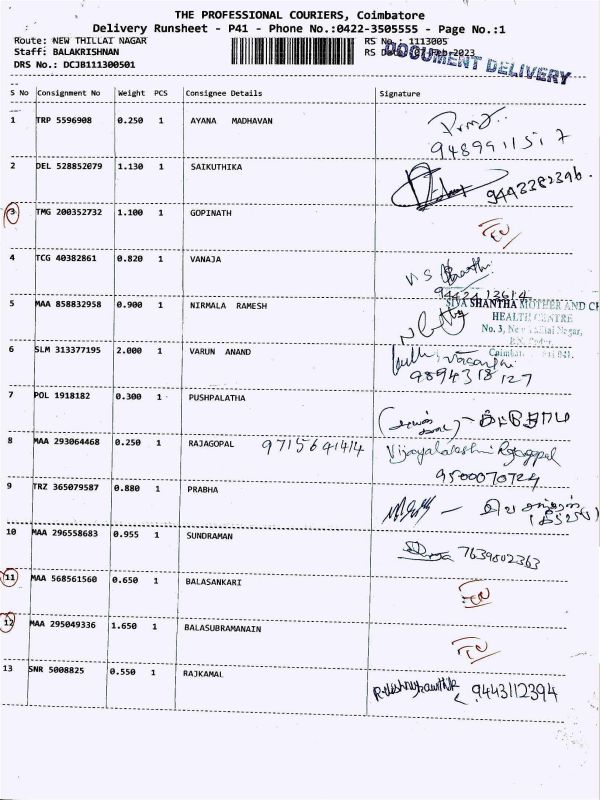 THE PROFESSIONAL COURIERS, Coimbatore
Delivery Runsheet - P41 - Phone No.:0422-3505555 - Page No.:1
Route: NEW THILLAI NAGAR
RS No.: 1113005
Staff: BALAKRISHNAN
RS Date: 07-Feb-2023
DOCUMENT DELIVERY
DRS No.: DCJB111300501
S No Consignment No Weight PCS Consignee Details Signature
1 TRP 5596908 0.250 1 AYANA MADHAVAN
9489911517
2 DEL 528852079 1.130 1 SAIKUTHIKA
9443382396.
3 TMG 200352732 1.100 1 GOPINATH
4 TCG 40382861 0.820 1 VANAJA
9442412614
5 MAA 858832958 0.900 1 NIRMALA RAMESH
SIVA SHANTHA MOTHER AND CH
HEALTH CENTRE
No. 3, New Thillai Nagar,
6 SLM 313377195 2.000 1 VARUN ANAND
9894318127
7 POL 1918182 0.300 1 PUSHPALATHA
8 MAA 293064468 0.250 1 RAJAGOPAL 9715641414 Vijayalakshmi Rajagopal
9500070724
9 TRZ 365079587 0.880 1 PRABHA
10 MAA 296558683 0.955 1 SUNDRAMAN
7639802363
11 MAA 568561560 0.650 1 BALASANKARI
12 MAA 295049336 1.650 1 BALASUBRAMANAIN
13 SNR 5008825 0.550 1 RAJKAMAL
9443112394